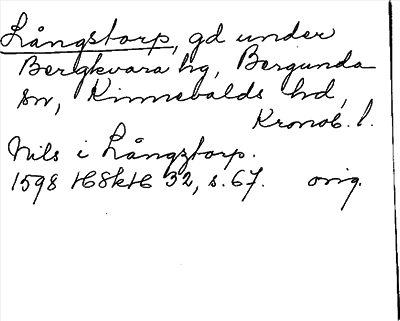 Långstorp, gd under
Bergkvara hg, Bergunda
sn, Kinnevalds hd,
Kronob. l.
Nils i Långztorp.
1598 HSkH 32, s. 67. orig.